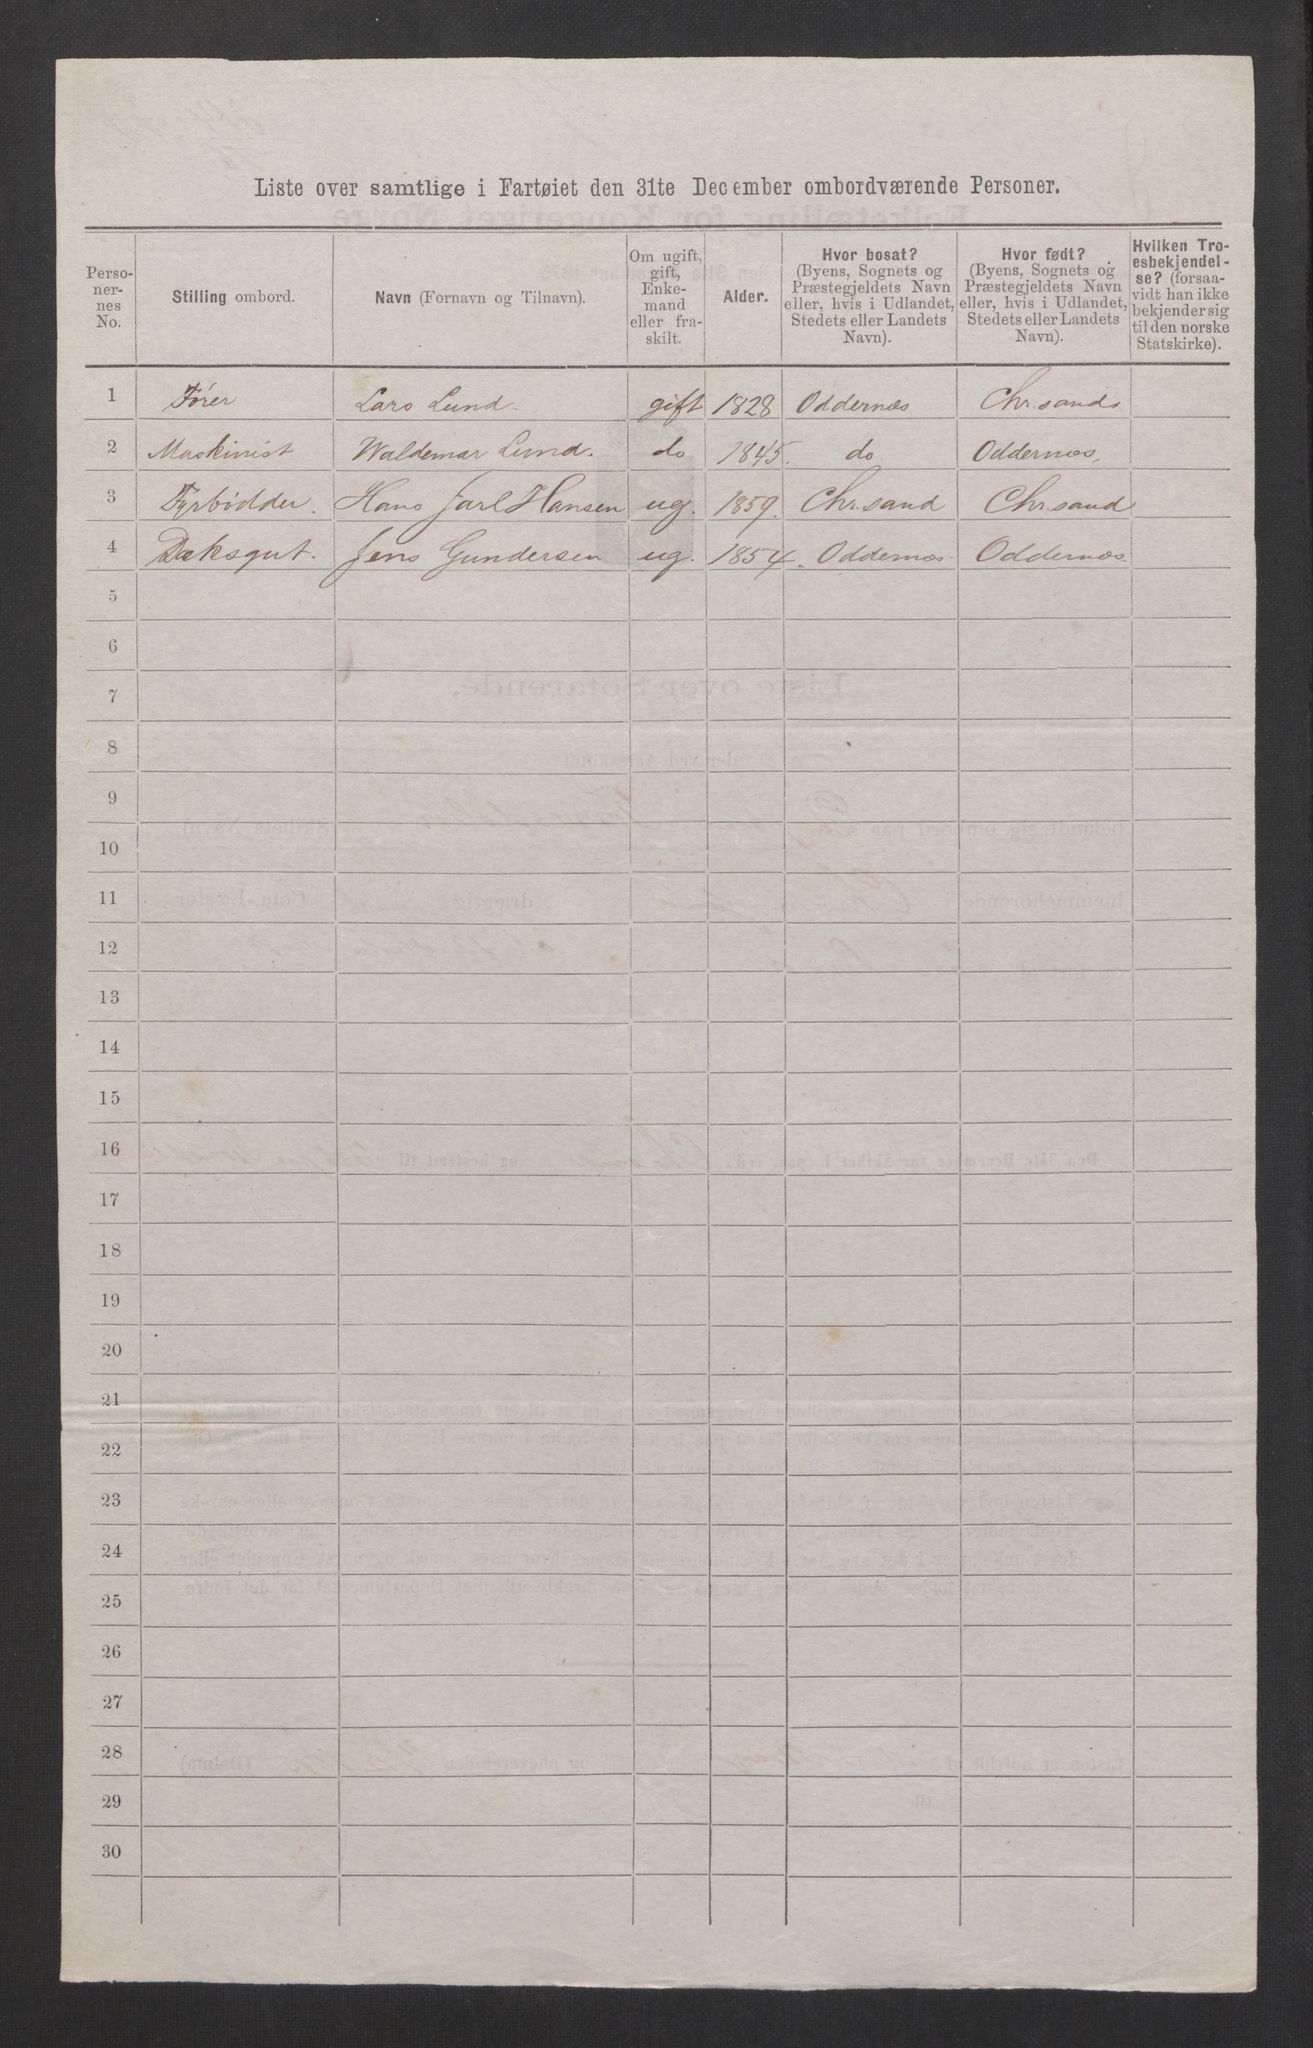 Liste over samtlige i Fartøiet den 31te December ombordværende Personer.
Perso-
ner-
nes
No.
Stilling ombord.
Navn (Fornavn og Tilnavn).
Om ugift,
gift,
Enke-
mand
eller fra-
skilt.
Alder.
Hvor bosat?
(Byens, Sognets og
Præstegjeldets Navn
eller, hvis i Udlandet,
Stedets eller Landets
Navn).
Hvor født?
(Byens, Sognets og
Præstegjeldets Navn
eller, hvis i Udlandet,
Stedets eller Landets
Navn).
Hvilken Tro-
esbekjendel-
se? (forsaa-
vidt han ikke
bekjender sig
til den norske
Statskirke).
1 Fører Lars Lund gift 1828 Oddernæs Chr.sand
2 Maskinist Waldemar Lund. do 1845. do Oddernæs.
3 Fyrbødder. Hans Jarl Hansen ug. 1859. Chr.sand Chr.sand
4 Dæksgut. Jens Gundersen ug. 1854. Oddernæs Oddernæs
5
6
7
8
9
10
11
12
13
14
15
16
17
18
19
20
21
22
23
24
25
26
27
28
29
30